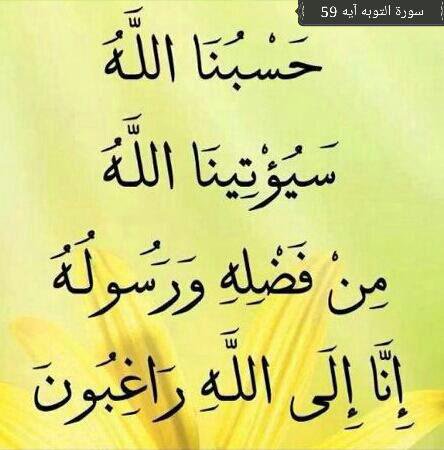 سورة التوبه آيه 59
حَسْبُنَا اللَّهُ
سَيُؤْتِينَا اللَّهُ
مِنْ فَضْلِهِ وَرَسُولُهُ
إِنَّا إِلَى اللَّهِ رَاغِبُونَ